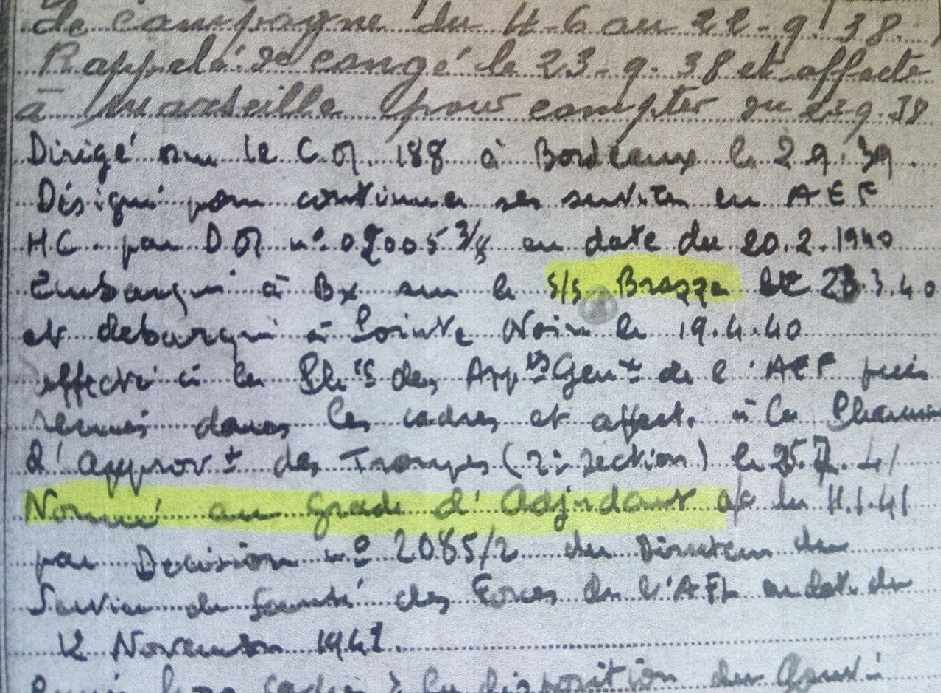 de campagne du 4-6 au 22-9-38.
Rappelé de congé le 23-9-38 et affecté
à Marseille pour compter du 23.9.38
Dirigé sur le C.M. 188 à Bordeaux le 2.9.39.
Désigné pour continuer ses services en AEF
HC par DM n° 02005 3/8 en date du 20.2.1940
Embarqué à Bx sur le s/s Brazza le 23.3.40
et debarqué à Pointe Noire le 19.4.40
affecté à la Ph ie des App ts Gen x de l'AEF puis
remis dans les cadres et affect. à la Pharmacie
d'Approv t des Troupes (2e Section) le 25.7.41
Nommé au grade d'Adjudant a/c du 11.1.41
par Decision n° 2085/2 du Directeur du
Service de Santé des Forces de l'AFL en date du
12 Novembre 1941.
cadres à la disposition du